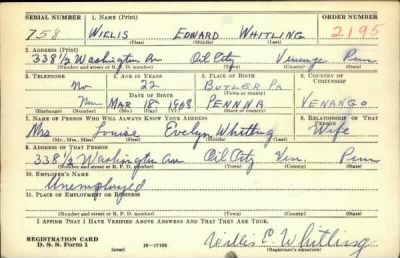 SERIAL NUMBER 1. NAME (Print) ORDER NUMBER
758 WILLIS EDWARD WHITLING 2195
(First) (Middle) (Last)
2. ADDRESS (Print)
338 1/2 Washington Av Oil City Venango Penn
(Number and street or R. F. D. number) (Town) (County) (State)
3. TELEPHONE 4. AGE IN YEARS 5. PLACE OF BIRTH 6. COUNTRY OF CITIZENSHIP
No 22 BUTLER PA
DATE OF BIRTH (Town or county)
MAR 18 PENNNA VENANGO
(Exchange) (Number) (Mo.) (Day) (Yr.) (State or country)
7. NAME OF PERSON WHO WILL ALWAYS KNOW YOUR ADDRESS 8. RELATIONSHIP OF THAT PERSON
Mrs Louise Evelyn Whitling Wife
(Mr., Mrs., Miss) (First) (Middle) (Last)
9. ADDRESS OF THAT PERSON
338 1/2 Washington Ave Oil City Ven. Penn
(Number and street or R. F. D. number) (Town) (County) (State)
10. EMPLOYER'S NAME
Unemployed
11. PLACE OF EMPLOYMENT OR BUSINESS
(Number and street or R. F. D. number) (Town) (County) (State)
I AFFIRM THAT I HAVE VERIFIED ABOVE ANSWERS AND THAT THEY ARE TRUE.
REGISTRATION CARD
D. S. S. Form 1 (over) 16—17105 Willis E. Whitling
(Registrant's signature)